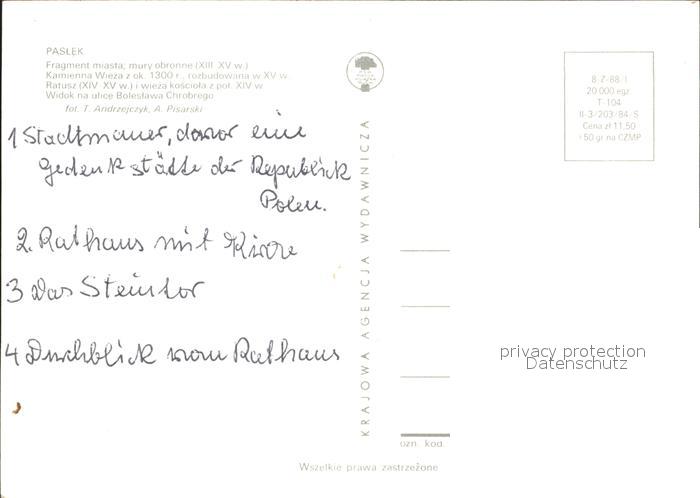 PASŁĘK
Fragment miasta; mury obronne (XIII XV w.)
Kamienna Wieża z ok. 1300 r., rozbudowana w XV w.
Ratusz (XIV XV w.) i wieża kościoła z poł. XIV w
Widok na ulicę Bolesława Chrobrego
fot. T. Andrzejczyk, A. Pisarski
1 Stadtmauer, davor eine
Gedenkstätte der Republick
Polen.
2. Rathaus mit Kirche
3 Das Steintor
4 Durchblick vom Rathaus
KRAJOWA AGENCJA WYDAWNICZA
8-Z-88/1
20 000 egz
T-104
II-3/203/84/S
Cena zł 11,50
+50 gr na CZMP
privacy protection
Datenschutz
ozn. kod.
Wszelkie prawa zastrzeżone